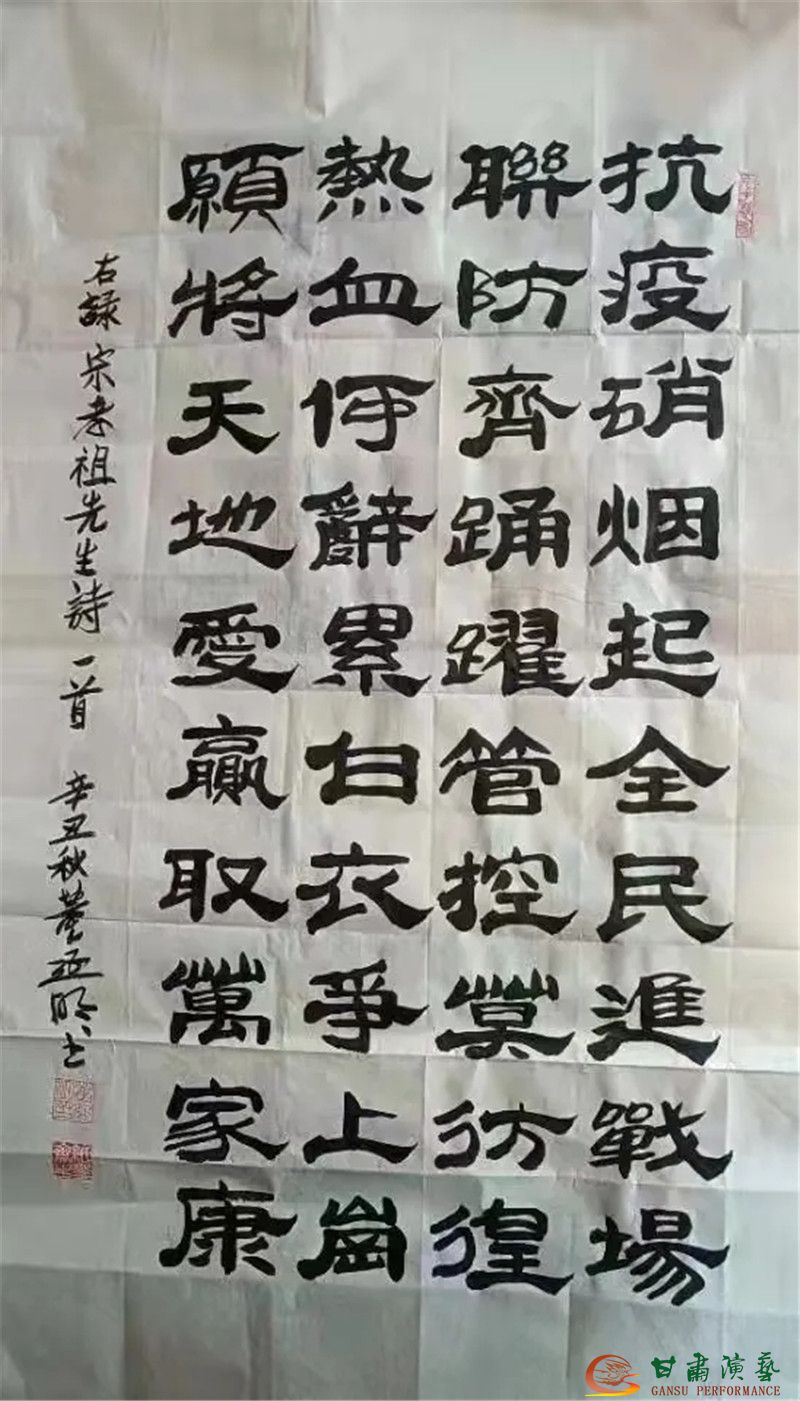 抗疫硝烟起全民進戰場
聯防齊踴躍管控莫彷徨
熱血何辭累白衣爭上崗
願將天地愛贏取萬家康
右録宗孝祖先生詩一首
辛丑秋董亚明書
甘肃演藝
GANSU PERFORMANCE